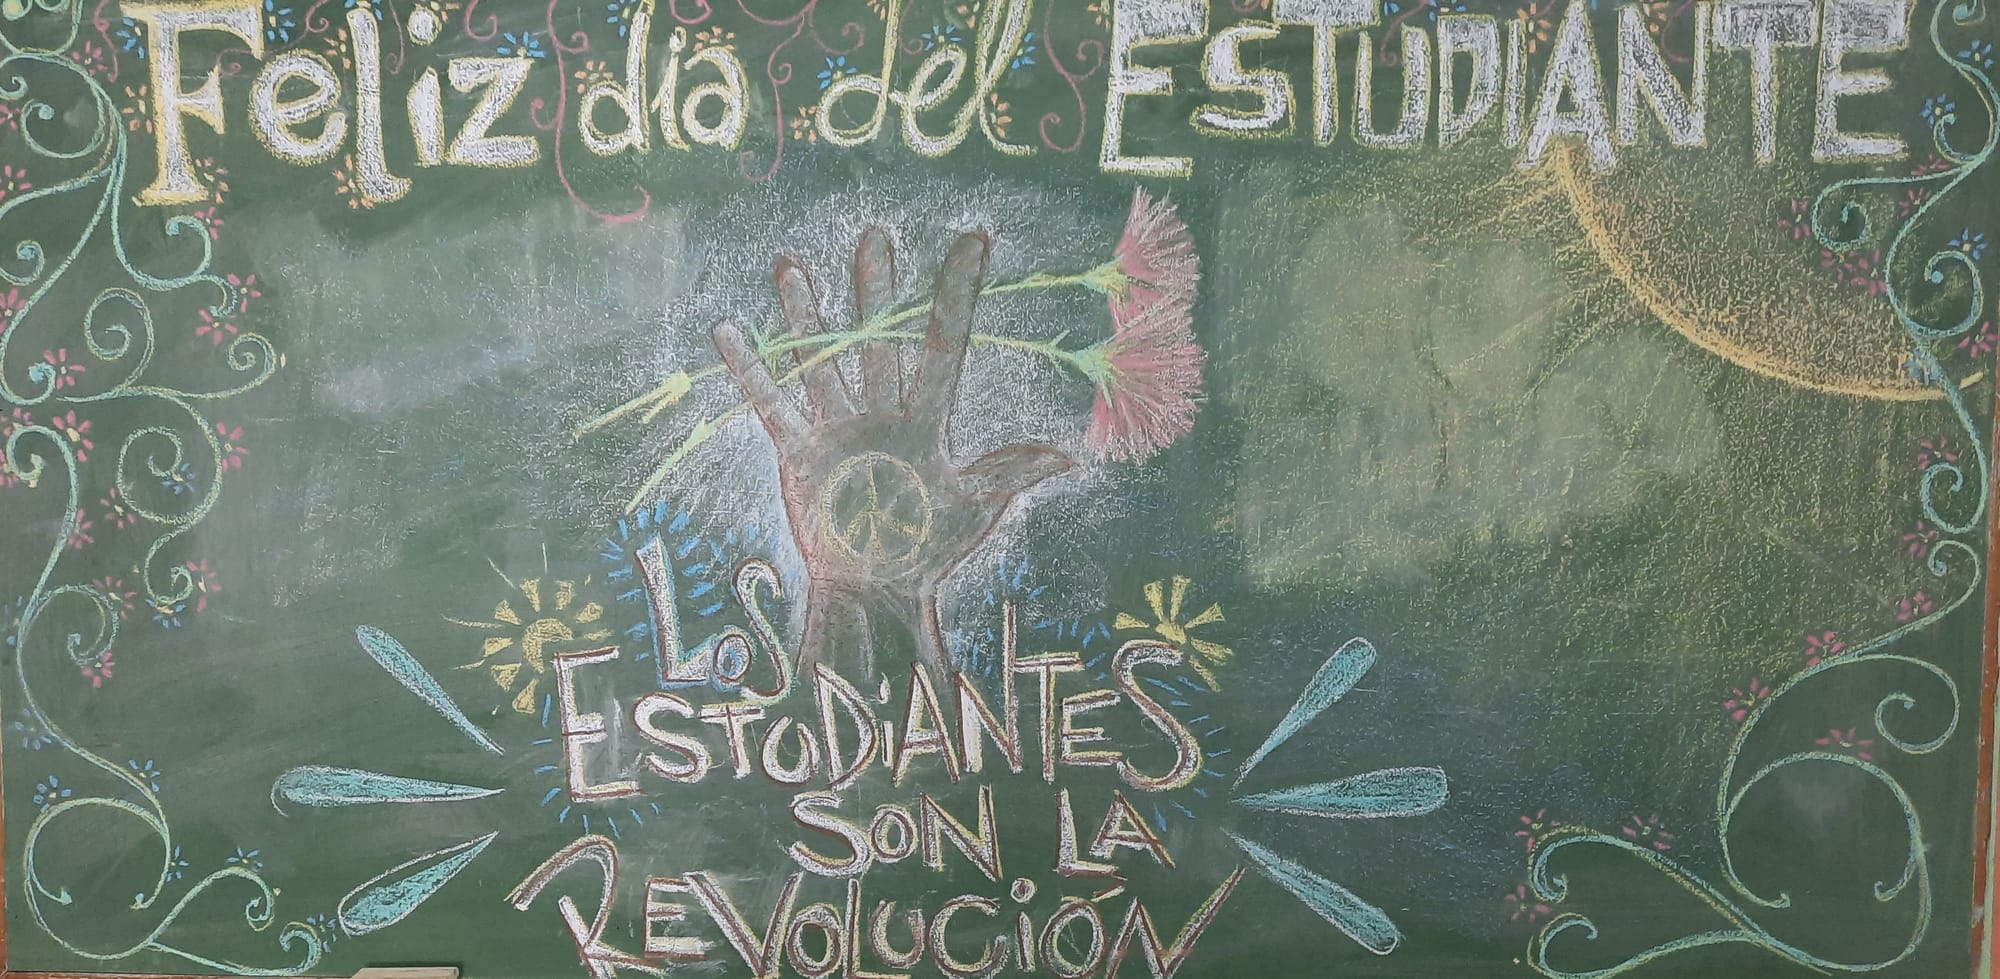 Feliz dia del ESTUDIANTE
LOS
ESTUDiANTES
SON LA
REVOLUCiÓN